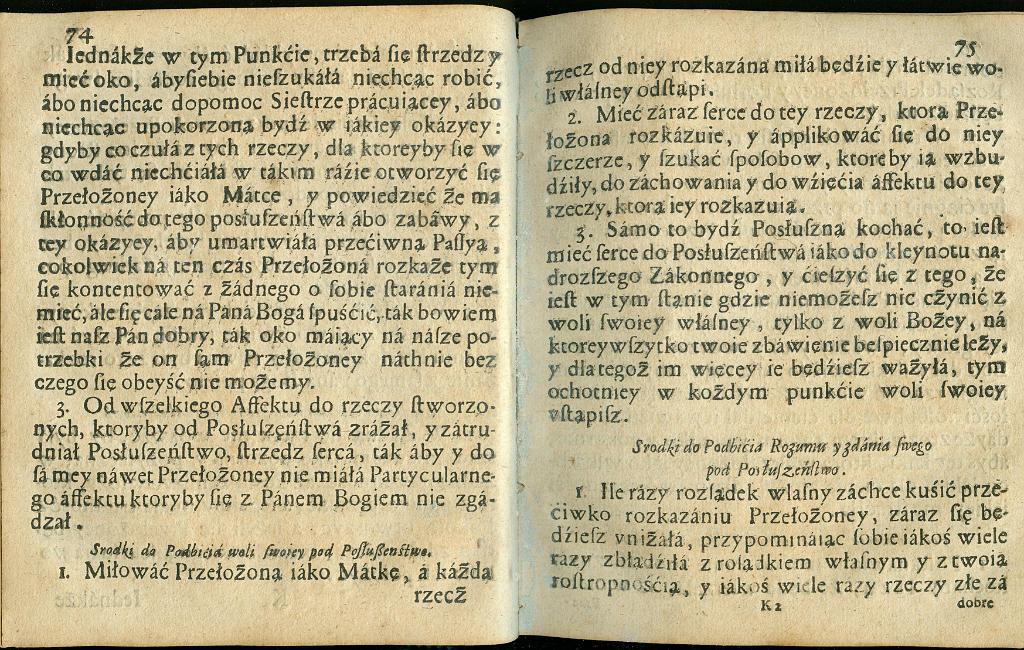 74
Iednákże w tym Punkćie, trzebá ſię ſtrzedz y
mieć oko, ábyſiebie nieſzukáłá niechcąc robić,
ábo niechcąc dopomoc Sieſtrze prácuiącey, ábo
niechcąc upokorzoną bydź w iákiey okázyey:
gdyby co czułá z tych rzeczy, dla ktoreyby ſię w
co wdáć niechćiáłá w tákim ráźie otworzyć ſię
Przełożoney iáko Mátce, y powiedzieć że ma
skłonność do tego posłuſzeńſtwá ábo zabáwy, z
tey okázyey, aby umartwiáłá przećiwną Paſſyą,
cokolwiek ná ten czás Przełożoná rozkaże tym
ſię kontentowáć z żádnego o ſobie ſtáránia nie-
mieć, ále ſię cále ná Páná Bogá ſpuśćić, ták bowiem
ieſt naſz Pán dobry, ták oko máiący ná náſze po-
trzebki że on ſam Przełożoney náthnie bez
czego ſię obeyść nie możemy.
3. Od wſzelkiego Affektu do rzeczy ſtworzo-
nych, ktoryby od Posłuſzęńſtwá zráżał, y zátru-
dniał Posłuſzeńſtwo, ſtrzedz ſercá, ták áby y do
ſámey náwet Przełożoney nie miáłá Partycularne-
go áffektu ktoryby ſię z Pánem Bogiem nie zgá-
dzał.
Srodki do Podbićia woli ſwoiey pod Poſłußeńſtwo.
1. Miłowáć Przełożoną iáko Mátkę, á káżda
rzecż
75
rzecz od niey rozkazána miłá będźie y łátwie wo-
li właſney odſtąpi.
2. Mieć záraz ſerce do tey rzeczy, ktorą Prze-
łożona rozkázuie, y ápplikowáć ſię do niey
ſzczerze, y ſzukáć ſpoſobow, ktoreby ią wzbu-
dźiły, do záchowania y do wźięćia áffektu do tey
rzeczy, ktorą iey rozkazuią.
3. Sámo to bydź Posłuſzną kochać, to ieſt
mieć ſerce do Posłuſzeńſtwá iáko do kleynotu na-
drozſzego Zákonnego, y ćieſzyć ſię z tego, że
ieſt w tym ſtanie gdzie niemożeſz nic cżynić z
woli ſwoiey właſney, tylko z woli Bożey, ná
ktorey wſzytko twoie zbáwienie beſpiecznie leży,
y dla tegoż im więcey ie będźieſz ważyłá, tym
ochotniey w każdym punkćie woli ſwoiey
vſtąpiſz.
Srodki do Podbićia Rozumu y zdánia ſwego
pod Posłuſzeńſtwo.
1. Ile rázy rozſądek właſny záchce kuśić prze-
ćiwko rozkazániu Przełożoney, záraz ſię bę-
dźieſz vniżałá, przypomináiąc ſobie iákoś wiele
razy zbłądźiłá z roſądkiem właſnym y z twoią
roſtropnośćią, y iákoś wiele razy rzeczy złe zá
K 2
dobre